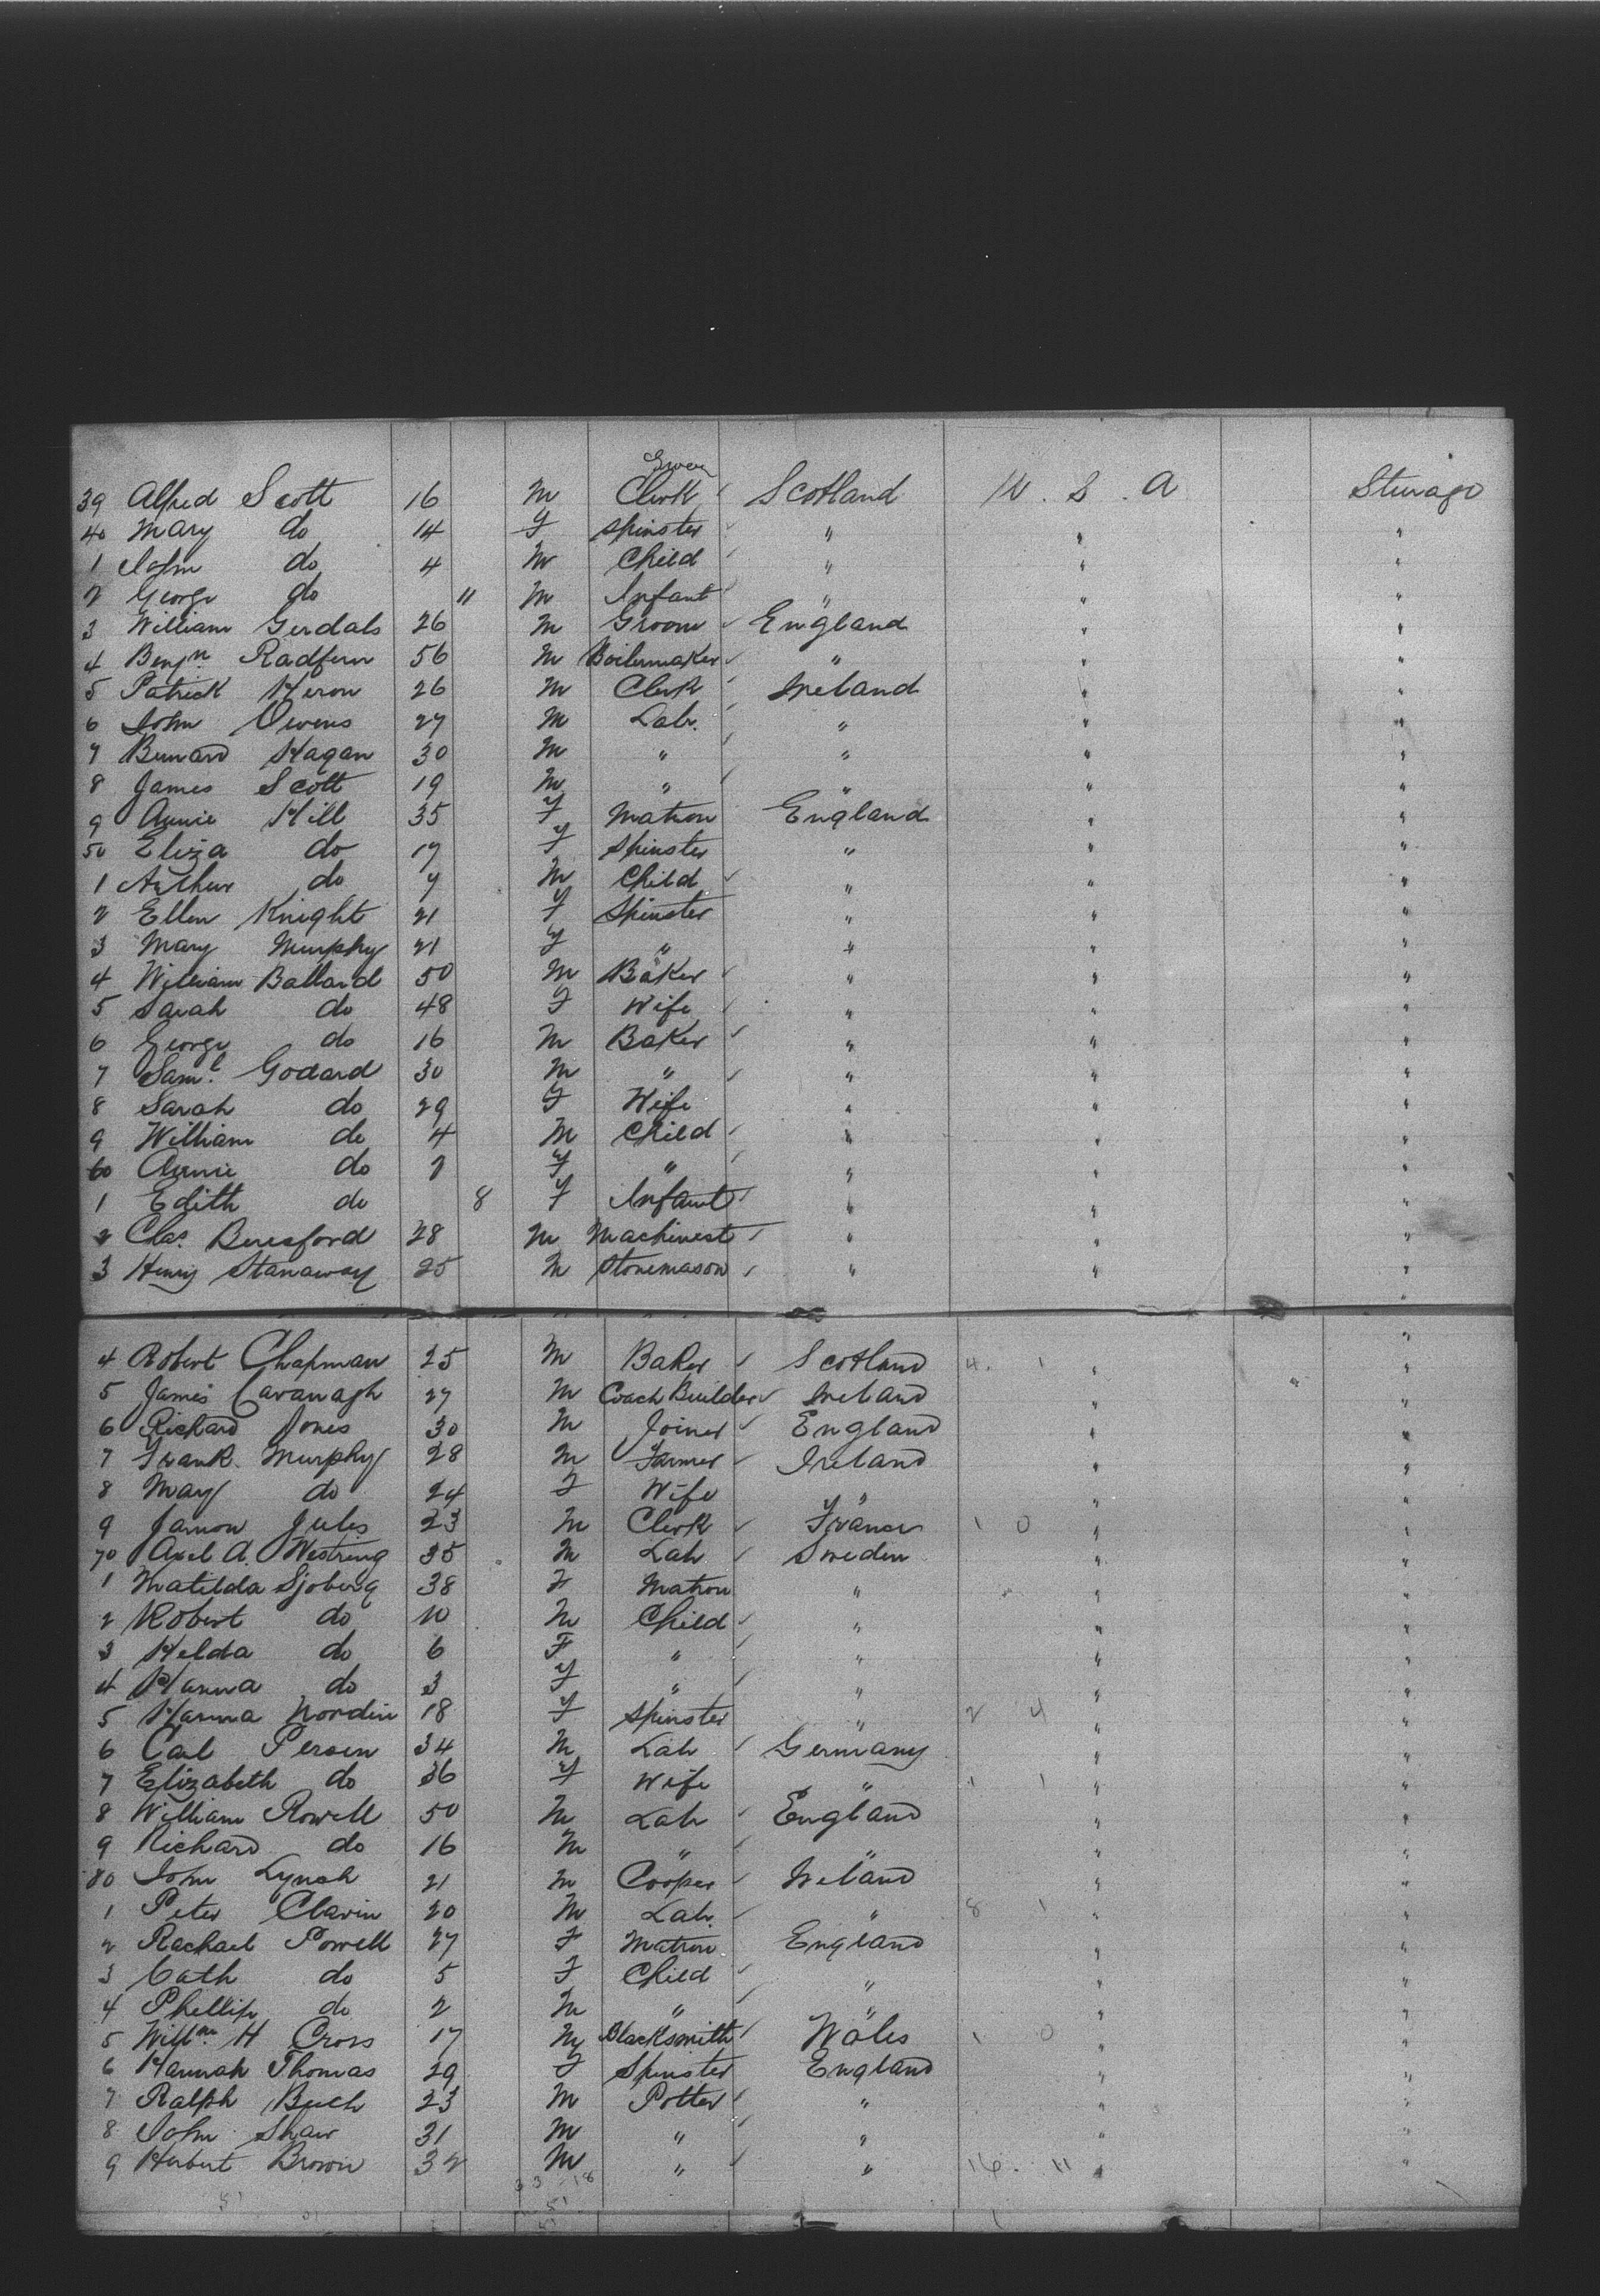 39 Alfred Scott 16 M Grocer Clerk Scotland U. S. A Steerage
40 Mary do 14 F Spinster " " "
1 John do 4 M Child " " "
2 George do 11 M Infant " " "
3 William Gerdals 26 M Groom England " "
4 Benjn. Radfern 56 M Boilermaker " " "
5 Patrick Heron 26 M Clerk Ireland " "
6 John Owens 27 M Labr. " " "
7 Bernard Hagan 30 M " " " "
8 James Scott 19 M " " " "
9 Annie Hill 35 F Matron England " "
50 Eliza do 17 F Spinster " " "
1 Arthur do 7 M Child " " "
2 Ellen Knight 21 F Spinster " " "
3 Mary Murphy 21 F " " " "
4 William Ballard 50 M Baker " " "
5 Sarah do 48 F Wife " " "
6 George do 16 M Baker " " "
7 Saml. Godard 30 M " " " "
8 Sarah do 29 F Wife " " "
9 William do 4 M Child " " "
60 Annie do 2 F " " " "
1 Edith do 8 F Infant " " "
2 Chas. Beresford 28 M Machinest " " "
3 Henry Stanaway 25 M Stonemason " " "
4 Robert Chapman 25 M Baker Scotland 4. 1 " "
5 James Cavanagh 27 M Coach Builder Ireland " "
6 Richard Jones 30 M Joiner England " "
7 Frank Murphy 28 M Farmer Ireland " "
8 Mary do 24 F Wife " " "
9 Jamon Jules 23 M Clerk France 1 0 " "
70 Axel A. Westring 35 M Labr Sweden " "
1 Matilda Sjoberg 38 F Matron " " "
2 Robert do 10 M Child " " "
3 Helda do 6 F " " " "
4 Hanna do 3 F " " " "
5 Hanna Nordin 18 F Spinster " 2 4 " "
6 Carl Persen 34 M Labr Germany " "
7 Elizabeth do 36 F Wife " 1 1 " "
8 William Rowell 50 M Labr England " "
9 Richard do 16 M " " " "
80 John Lynch 21 M Cooper Ireland " "
1 Peter Clavin 20 M Labr. " 8 1 " "
2 Rachael Powell 27 F Matron England " "
3 Cath do 5 F Child " " "
4 Phellip do 2 M " " " "
5 Willm. H Cross 17 M Blacksmith Wales 1 0 " "
6 Hannah Thomas 29 F Spinster England " "
7 Ralph Buch 23 M Potter " " "
8 John Shaw 31 M " " " "
9 Herbert Brown 32 M " " 16. 11 " "
33 18
51 51